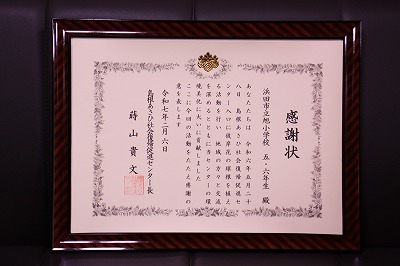 感謝状
浜田市立旭小学校 五・六年生 殿
あなたたちは 令和六年五月二十
八日 島根あさひ社会復帰促進セ
ンター入口に彼岸花の球根を植え
る活動を行い 地域の方々と交流
を深めるとともに当センターの環
境美化に大いに貢献しました
ここに今回の活動をたたえ感謝の
意を表します
令和七年二月六日
島根あさひ社会復帰促進センター長
蒔山貴文